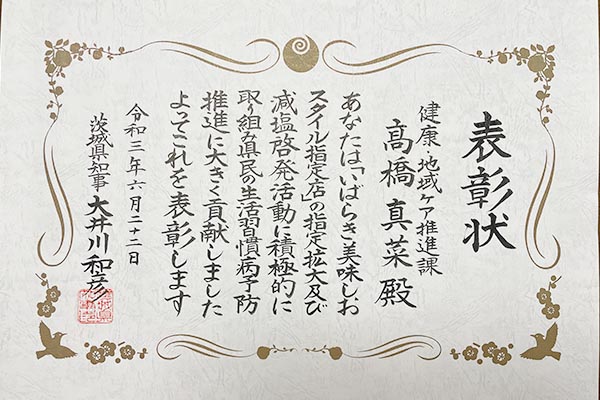 表彰状
健康・地域ケア推進課
髙橋真菜殿
あなたは「いばらき美味しお
スタイル指定店」の指定拡大及び
減塩啓発活動に積極的に
取り組み県民の生活習慣病予防
推進に大きく貢献しました
よってこれを表彰します
令和三年六月二十二日
茨城県知事 大井川和彦